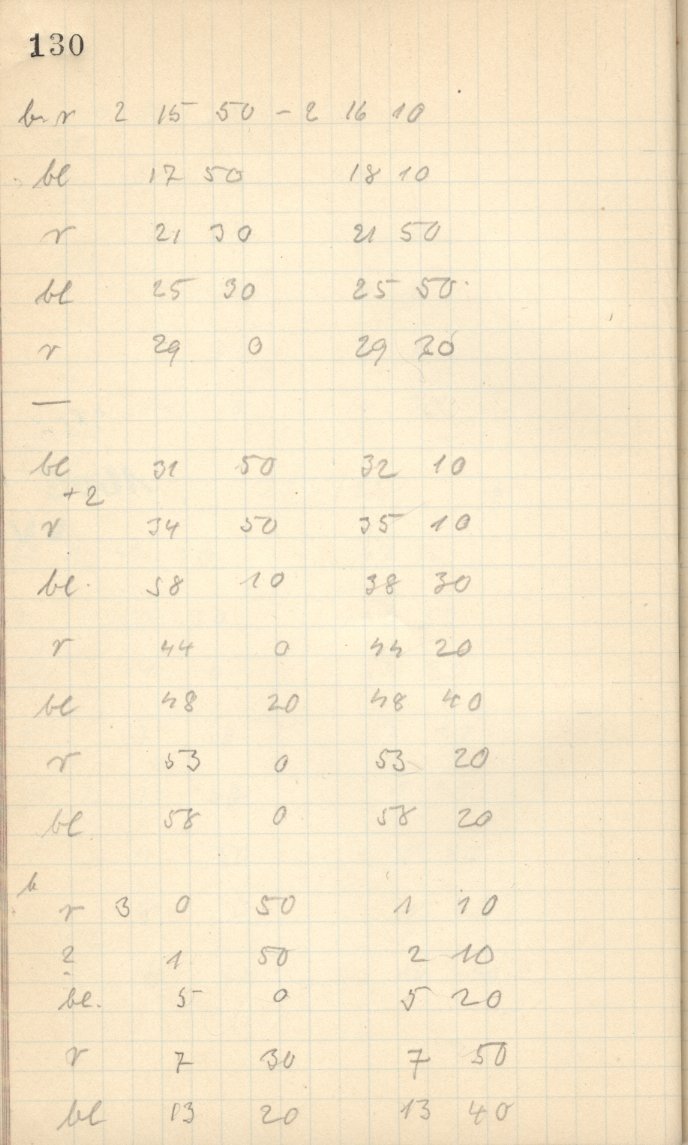 130
b. r 2 15 50 - 2 16 10
bl 17 50 18 10
r 21 30 21 50
bl 25 30 25 50
r 29 0 29 20
—
bl 31 50 32 10
+2
r 34 50 35 10
bl. 38 10 38 30
r 44 0 44 20
bl 48 20 48 40
r 53 0 53 20
bl 58 0 58 20
b
r 3 0 50 1 10
? 1 50 2 10
bl. 5 0 5 20
r 7 30 7 50
bl 13 20 13 40